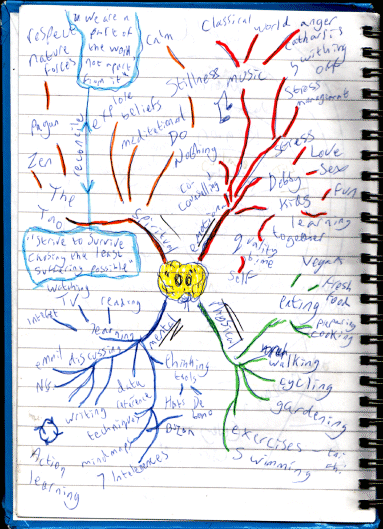 "We are a
part of
the world
not apart
from it"
respect
nature
forces
Pagan
Zen
The
Tao
reconcile
"I strive to survive
causing the least
suffering possible"
Calm
explore
beliefs
meditational
Do
Nothing
Stillness
spiritual
Classical
world
anger
catharsis
music
off
Stress
management
stress
Love
Sex
Debby
Fun
Kids
learning
together
quality
time
Self
Co-
counselling
emotional
mental
Physical
watching
TV
reading
Internet
learning
email
discussing
NGs
writing
data
techniques
mindmaps
7 Intelligences
Action
learning
thinking
tools
Hats
De
Bono
Buzan
Vegan
Fresh
food
eating
cooking
walking
cycling
gardening
exercises - tai
chi
Swimming